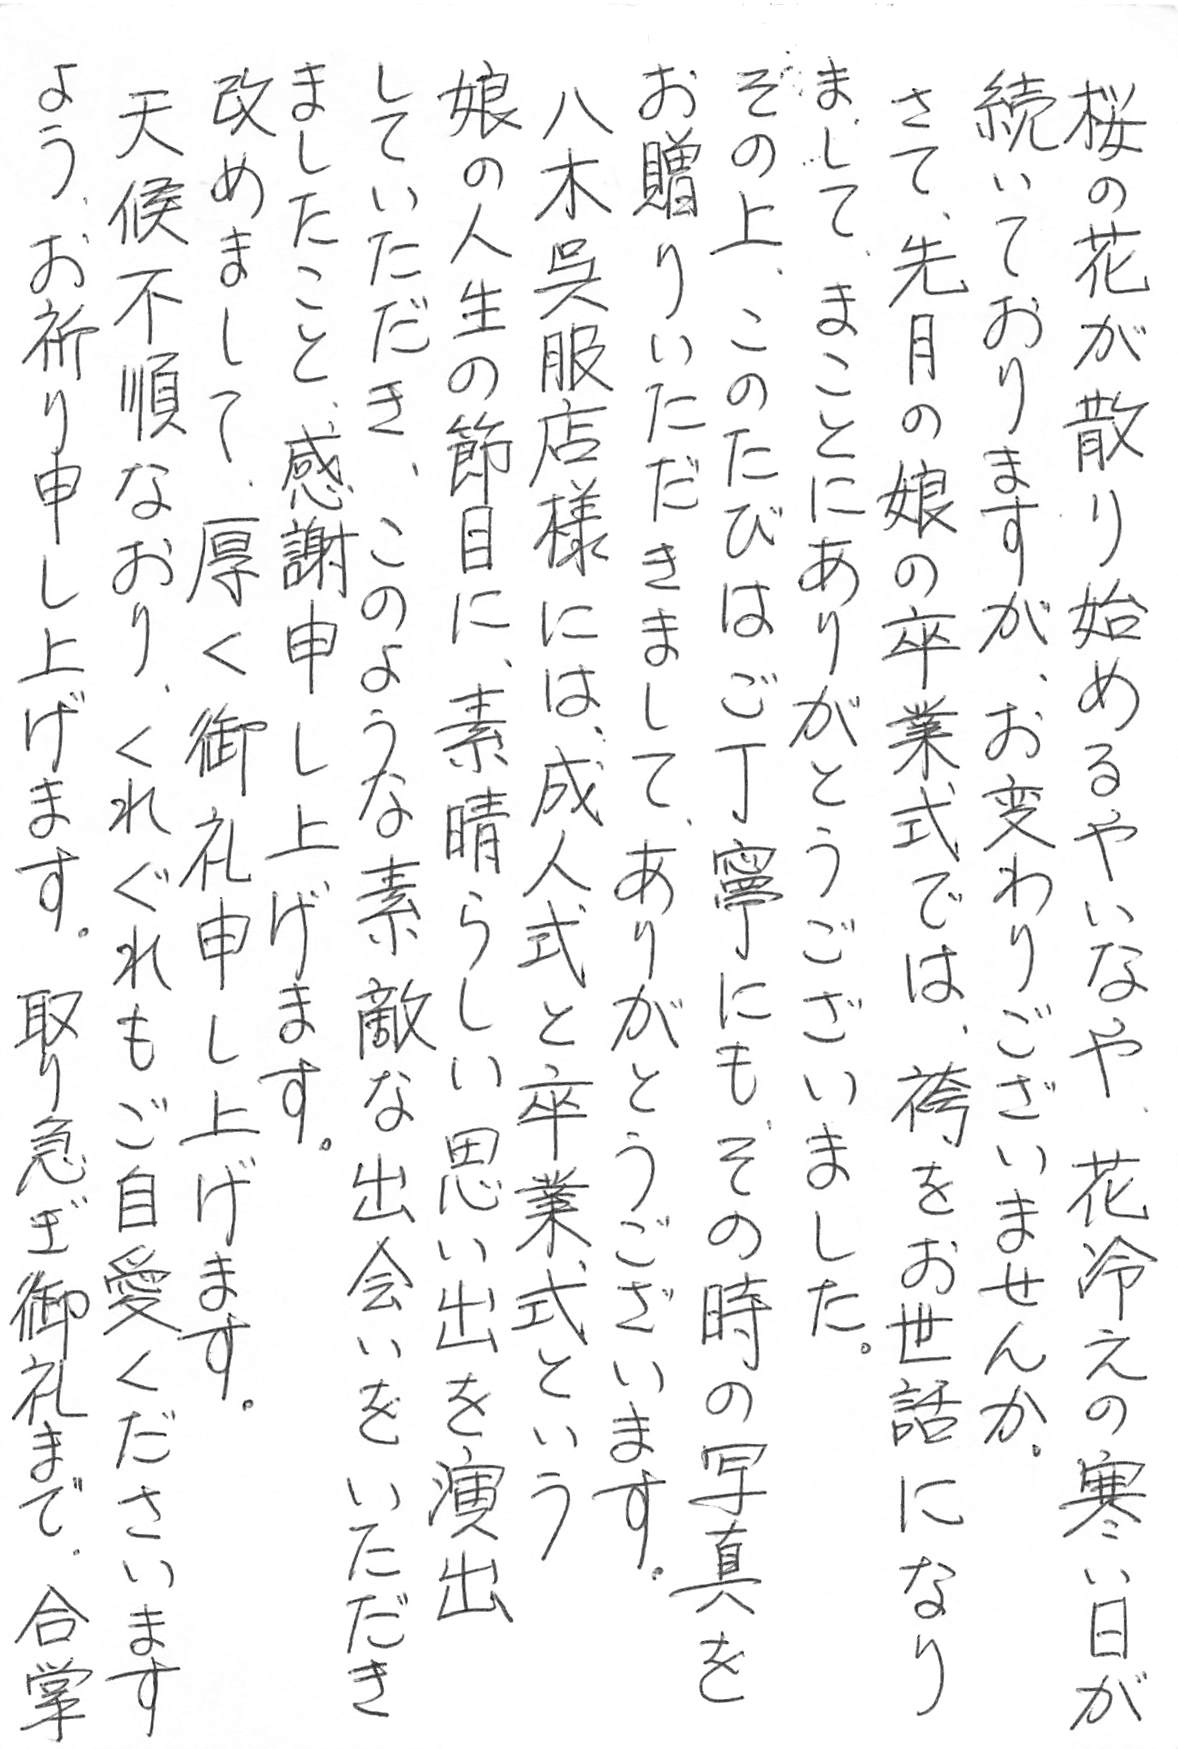 桜の花が散り始めるやいなや、花冷えの寒い日が
続いておりますが、お変わりございませんか。
さて、先月の娘の卒業式では、袴をお世話になり
まして、まことにありがとうございました。
その上、このたびはご丁寧にも、その時の写真を
お贈りいただきまして、ありがとうございます。
八木呉服店様には、成人式と卒業式という
娘の人生の節目に、素晴らしい思い出を演出
していただき、このような素敵な出会いをいただき
ましたこと、感謝申し上げます。
改めまして、厚く御礼申し上げます。
天候不順なおり、くれぐれもご自愛くださいます
よう、お祈り申し上げます。取り急ぎ御礼まで。合掌